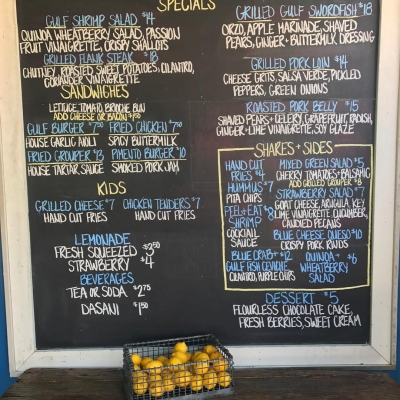 SPECIALS
GULF SHRIMP SALAD $14
QUINOA WHEATBERRY SALAD, PASSION
FRUIT VINAIGRETTE, CRISPY SHALLOTS
GRILLED FLANK STEAK $18
CHUTNEY, ROASTED SWEET POTATOES, CILANTRO,
CORIANDER VINAIGRETTE
SANDWICHES
LETTUCE, TOMATO, BRIOCHE BUN
ADD CHEESE OR BACON
GULF BURGER $7.50 FRIED CHICKEN $7
HOUSE GARLIC AIOLI SPICY BUTTERMILK
FRIED GROUPER $13 PIMENTO BURGER $10
HOUSE TARTAR SAUCE SMOKED PORK JAM
KIDS
GRILLED CHEESE $7 CHICKEN TENDERS $7
HAND CUT FRIES HAND CUT FRIES
LEMONADE
FRESH SQUEEZED $3.50
STRAWBERRY $4
BEVERAGES
TEA OR SODA $2.75
DASANI $1.50
GRILLED GULF SWORDFISH $18
ORZO, APPLE MARINADE, SHAVED
PEARS, GINGER + BUTTERMILK DRESSING
GRILLED PORK LOIN $14
CHEESE GRITS, SALSA VERDE, PICKLED
PEPPERS, GREEN ONIONS
ROASTED PORK BELLY $15
SHAVED PEARS + CELERY, GRAPEFRUIT, RADISH,
GINGER + LIME VINAIGRETTE, SOY GLAZE
SHARES + SIDES
HAND CUT
FRIES $4
HUMMUS $7
PITA CHIPS
PEEL + EAT $8
SHRIMP
COCKTAIL
SAUCE
BLUE CRAB + $12
GULF FISH CEVICHE
CILANTRO, PURPLE CHIPS
MIXED GREEN SALAD $5
CHERRY TOMATOES + BALSAMIC
ADD GRILLED GROUPER $8
STRAWBERRY SALAD $7
GOAT CHEESE, ARUGULA, KEY
LIME VINAIGRETTE, CUCUMBER,
CANDIED PECANS
BLUE CHEESE QUESO $10
CRISPY PORK RINDS
QUINOA + $6
WHEATBERRY
SALAD
DESSERT $5
FLOURLESS CHOCOLATE CAKE,
FRESH BERRIES, SWEET CREAM